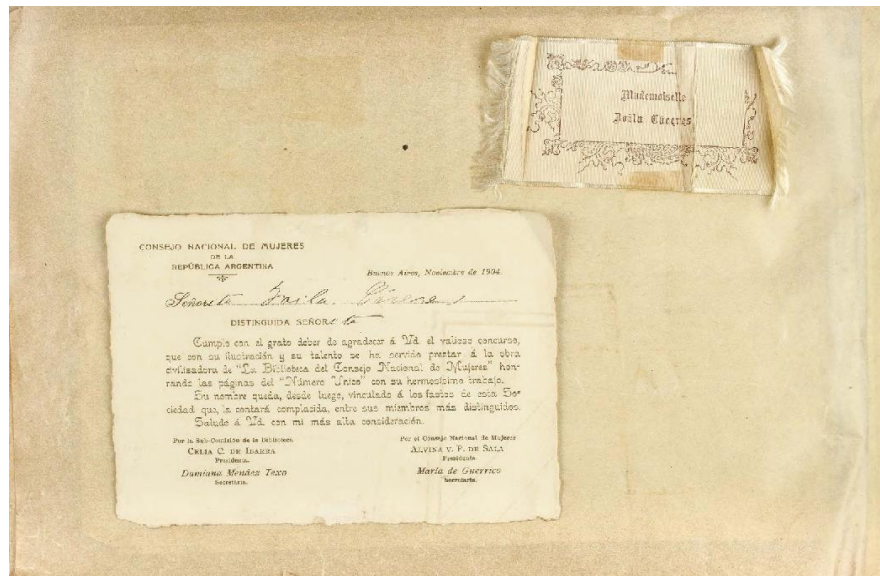 Mademoiselle
Zoila Cáceres
CONSEJO NACIONAL DE MUJERES
DE LA
REPÚBLICA ARGENTINA
Buenos Aires, Noviembre de 1904.
Señorita Zoila Cáceres
DISTINGUIDA SEÑORita
Cumplo con el grato deber de agradecer á Vd. el valioso concurso,
que con su ilustración y su talento se ha servido prestar á la obra
civilisadora de "La Biblioteca del Consejo Nacional de Mujeres" hon-
rando las páginas del "Número Unico" con su hermosísimo trabajo.
Su nombre queda, desde luego, vinculado á los fastos de esta So-
ciedad que, la contará complacida, entre sus miembros más distinguidos.
Saludo á Vd. con mi más alta consideración.
Por la Sub-Comisión de la Biblioteca
CELIA C. DE IBARRA
Presidenta.
Damiana Mendez Texo
Secretaria.
Por el Consejo Nacional de Mujeres
ALVINA V. P. DE SALA
Presidente
María de Guerrico
Secretaria.